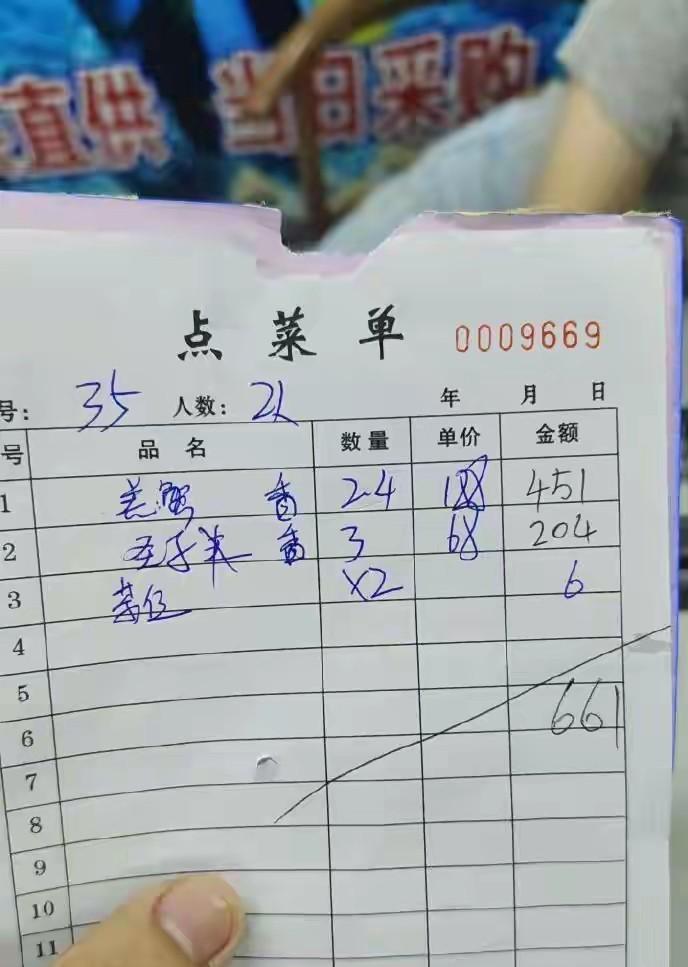 直供 当日采购
点菜单 0009669
号: 35 人数: 2人 年 月 日
号 品名 数量 单价 金额
1 羔蟹 香 24 188 451
2 圣子米 香 3 68 204
3 茶位 x2 6
4
5
661
6
7
8
9
10
11